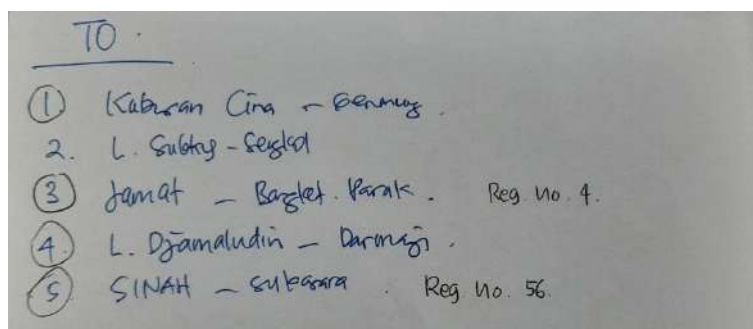 TO.
① Kuburan Cina –
2. L. – Sengkol
③ Jamat – Bangket. Parak. Reg. No. 4.
④ L. Djamaludin – Darmaji.
⑤ SINAH – Sukarara. Reg. No. 56.